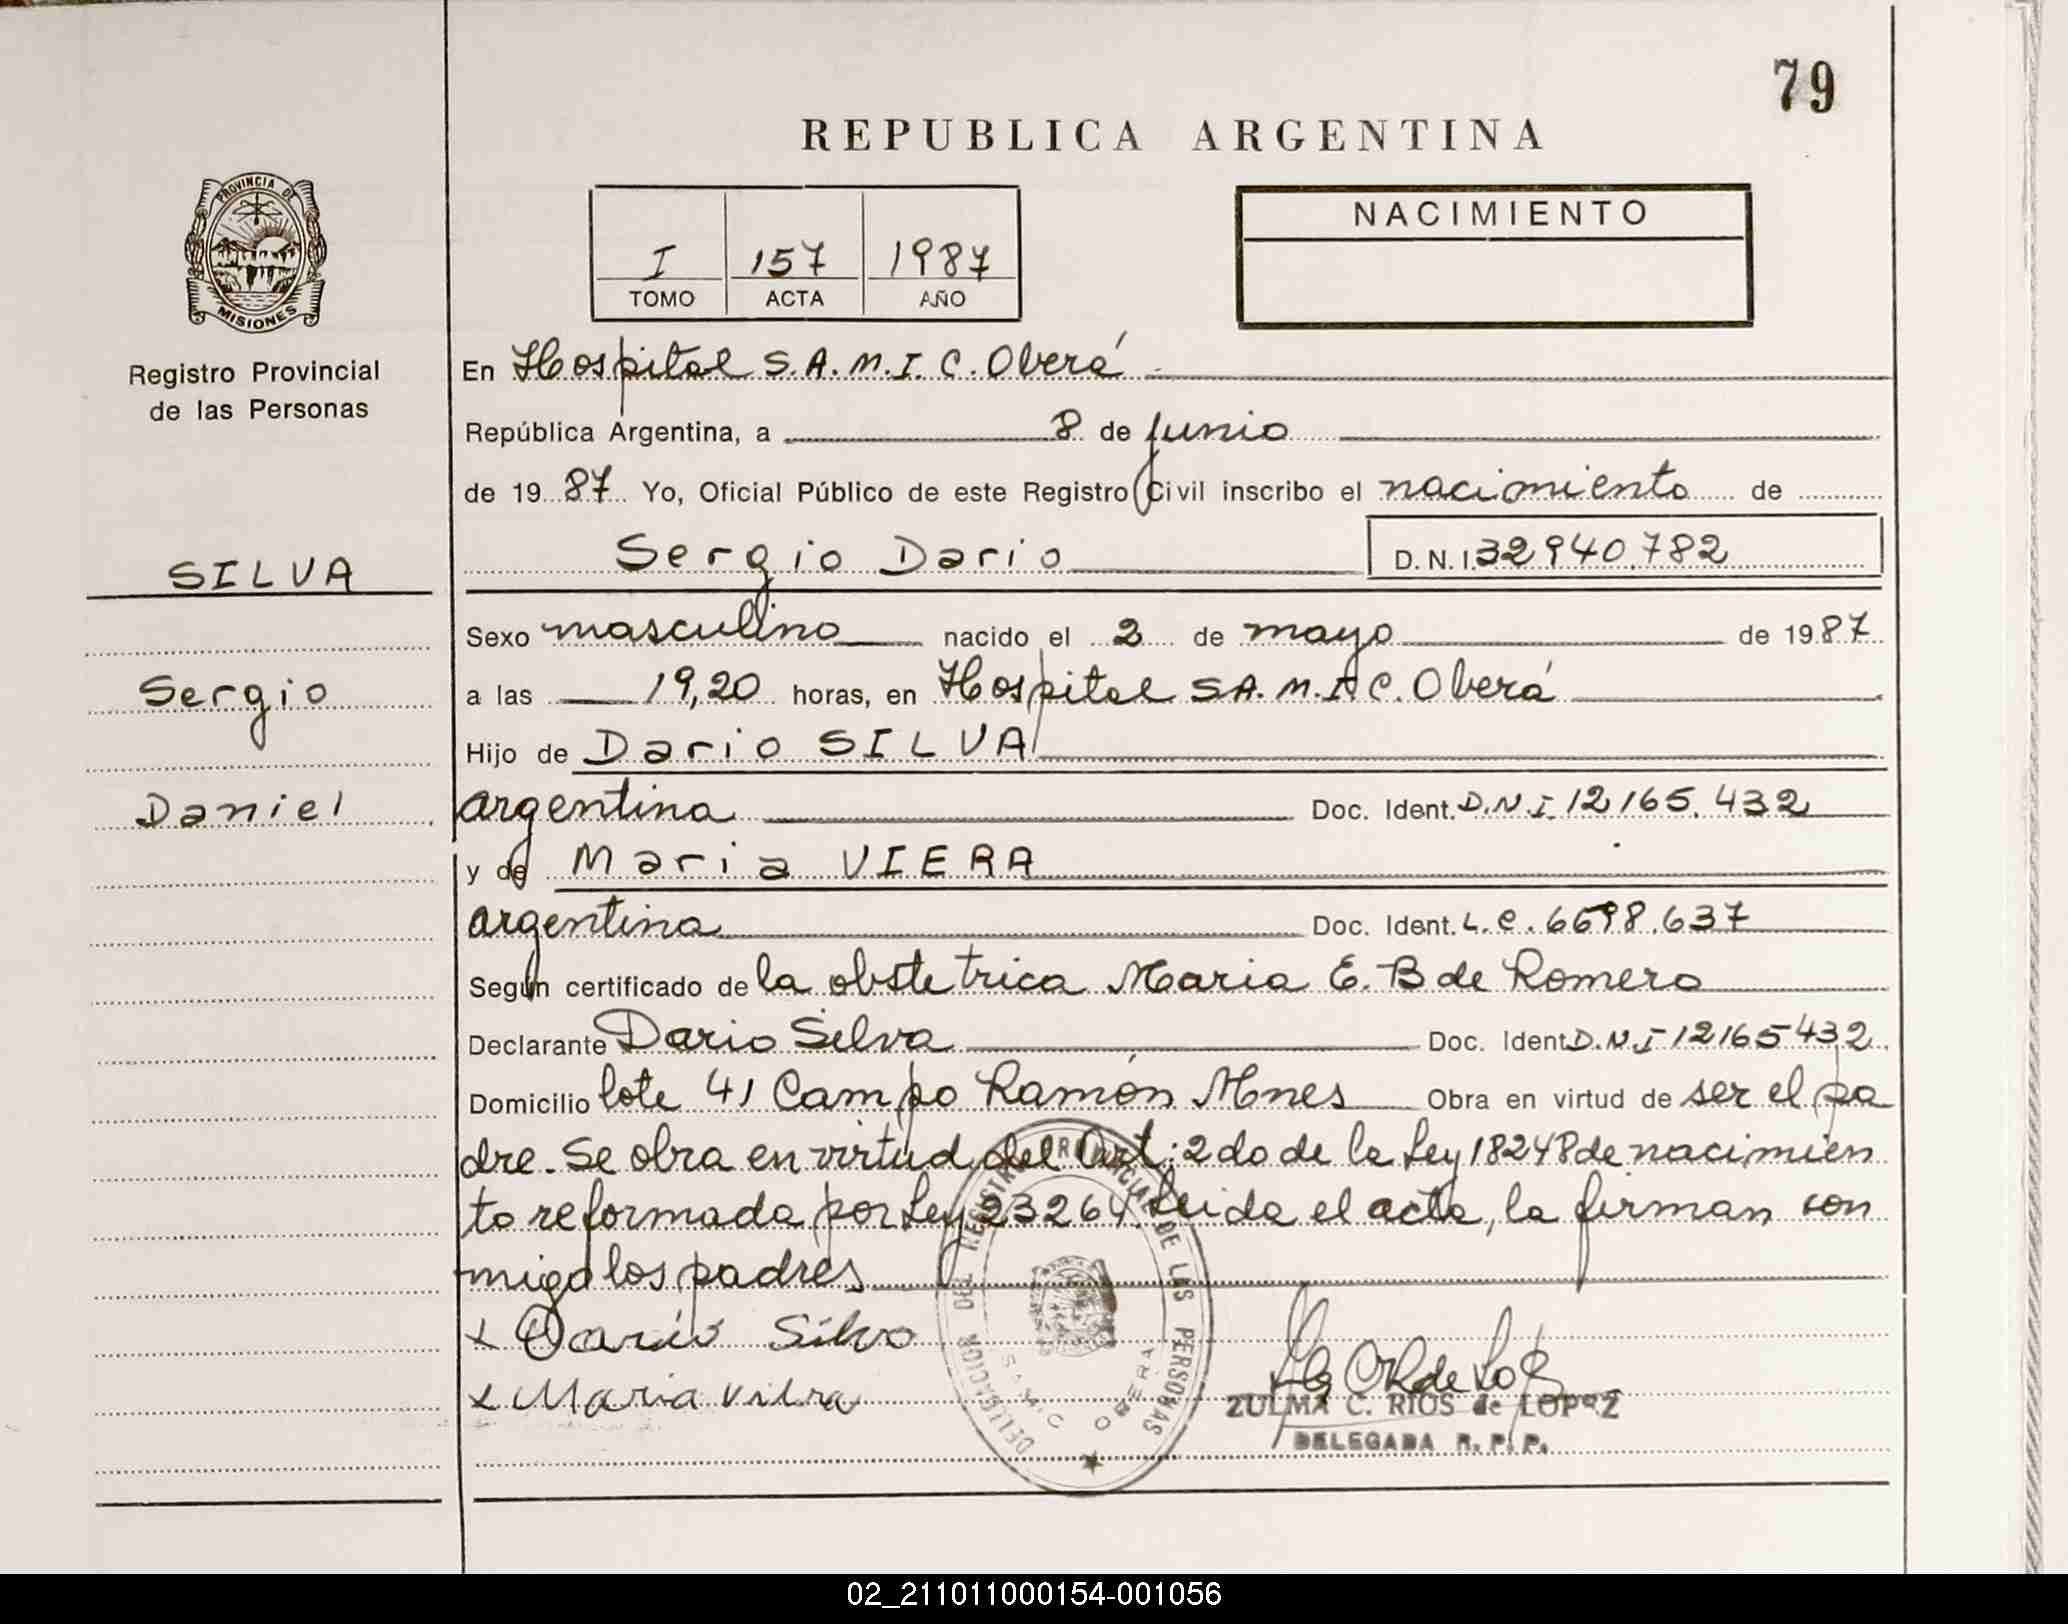 79
REPUBLICA ARGENTINA
PROVINCIA DE
MISIONES
Registro Provincial
de las Personas
I 157 1987
TOMO ACTA AÑO
NACIMIENTO
En Hospital S.A.M.I.C. Oberá
República Argentina, a 8 de Junio
de 1987 Yo, Oficial Público de este Registro Civil inscribo el nacimiento de
Sergio Dario D.N.I. 32940.782
SILVA
Sergio
Daniel
Sexo masculino nacido el 2 de mayo de 1987
a las 19,20 horas, en Hospital S.A.M.I.C. Oberá
Hijo de Dario SILVA
argentina Doc. Ident. D.N.I. 12165.432
y de Maria VIERA
argentina Doc. Ident. L.C. 6698.637
Según certificado de la obstetrica Maria E. B de Romero
Declarante Dario Silva Doc. Ident. D.N.I 12165432
Domicilio lote 41 Campo Ramón Mnes Obra en virtud de ser el pa
dre. Se obra en virtud del Art: 2do de la Ley 18248 de nacimien
to reformada por Ley 23264. Leida el acta, la firman con
migo los padres
x Dario Silva
x Maria Viera
DELEGACION DEL REGISTRO PROVINCIAL DE LAS PERSONAS
OBERA
ZULMA C. RIOS de LOPEZ
DELEGADA R. P. P.
02_211011000154-001056